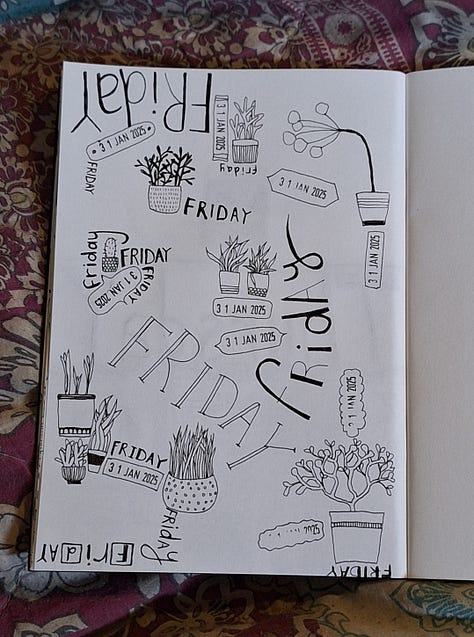 FRidAY
31 JAN 2025
31 JAN 2025
friday
FRIDAY
31 JAN 2025
FRIDAY
31 JAN 2025
friday
FRIDAY
FRIDAY
31 JAN 2025
31 JAN 2025
31 JAN 2025
fRidAy
FRIDAY
1 JAN 2025
FRIDAY
31 JAN 2025
FRIdAY
FRidAY
2025
FRIDAY